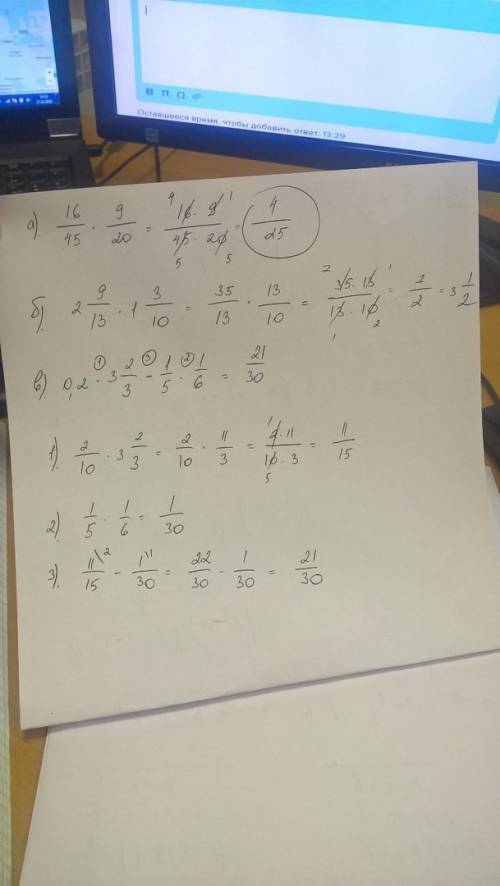 B π Ω
Оставшееся время, чтобы добавить ответ: 13:29
а) 16/45 · 9/20 = 16 · 9 / 45 · 20 = 4/25
б) 2 9/13 · 1 3/10 = 35/13 · 13/10 = 35 · 13 / 13 · 10 = 7/2 = 3 1/2
в) 0,2 · 3 2/3 - 1/5 · 1/6 = 21/30
1) 2/10 · 3 2/3 = 2/10 · 11/3 = 2 · 11 / 10 · 3 = 11/15
2) 1/5 · 1/6 = 1/30
3) 11/15 - 1/30 = 22/30 - 1/30 = 21/30